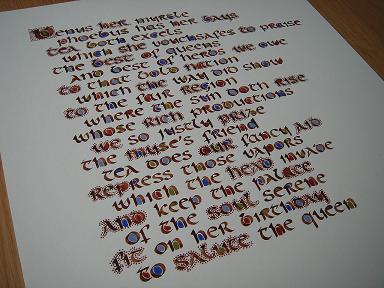 Venus her myrtle
Phoebus has her bays
tea both excels
which she vouchsafes to praise
the best of queens
and best of herbs we owe
to that bold nation
which the way did show
to the fair region
where the sun doth rise
whose rich productions
we so justly prize
the muse's friend
tea does our fancy aid
repress those vapors
which the head invade
and keep the palace
of the soul serene
fit on her birthday
to salute the queen